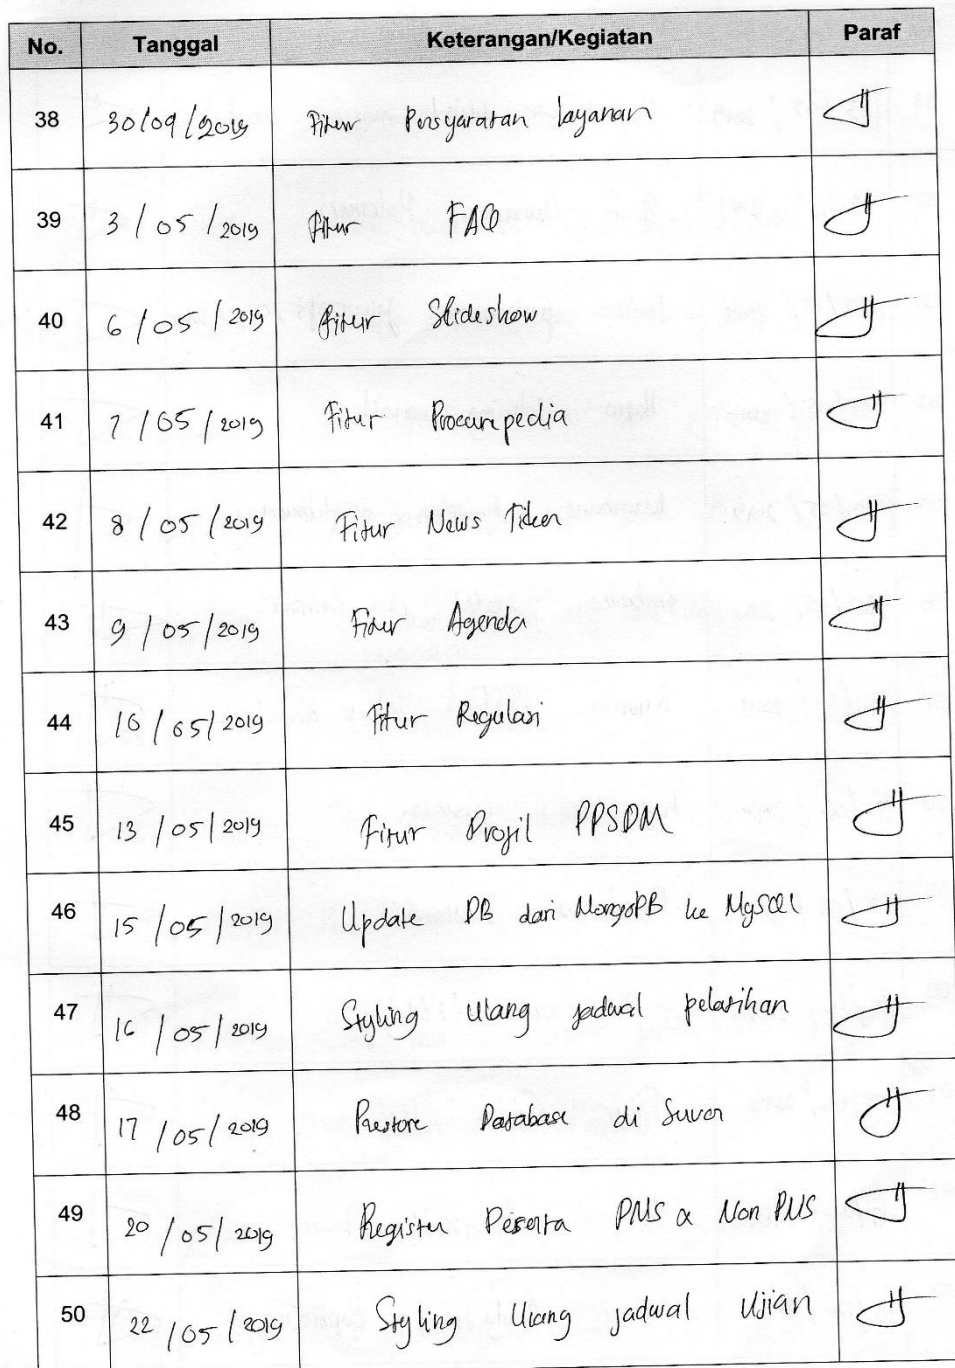 No. Tanggal Keterangan/Kegiatan Paraf
38 30/09/2019 Fitur Persyaratan layanan
39 3/05/2019 Fitur FAQ
40 6/05/2019 Fitur Slideshow
41 7/05/2019 Fitur Procurepedia
42 8/05/2019 Fitur News Tiker
43 9/05/2019 Fitur Agenda
44 10/05/2019 Fitur Regulasi
45 13/05/2019 Fitur Profil PPSDM
46 15/05/2019 Update DB dari MongoDB ke MySQL
47 16/05/2019 Styling Ulang jadwal pelatihan
48 17/05/2019 Restore Database di Server
49 20/05/2019 Register Peserta PNS & Non PNS
50 22/05/2019 Styling Ulang jadwal Ujian